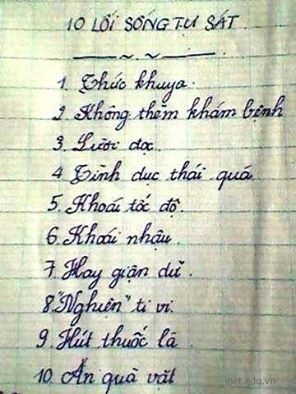 10 LỐI SỐNG TỰ SÁT
1. Thức khuya.
2. Không thèm khám bệnh
3. Lười đọc.
4 Tình dục thái quá
5. Khoái tốc độ.
6. Khoái nhậu.
7. Hay giận dữ.
8. "Nghiện" ti vi.
9. Hút thuốc lá.
10. Ăn quà vặt
inet.edu.vn